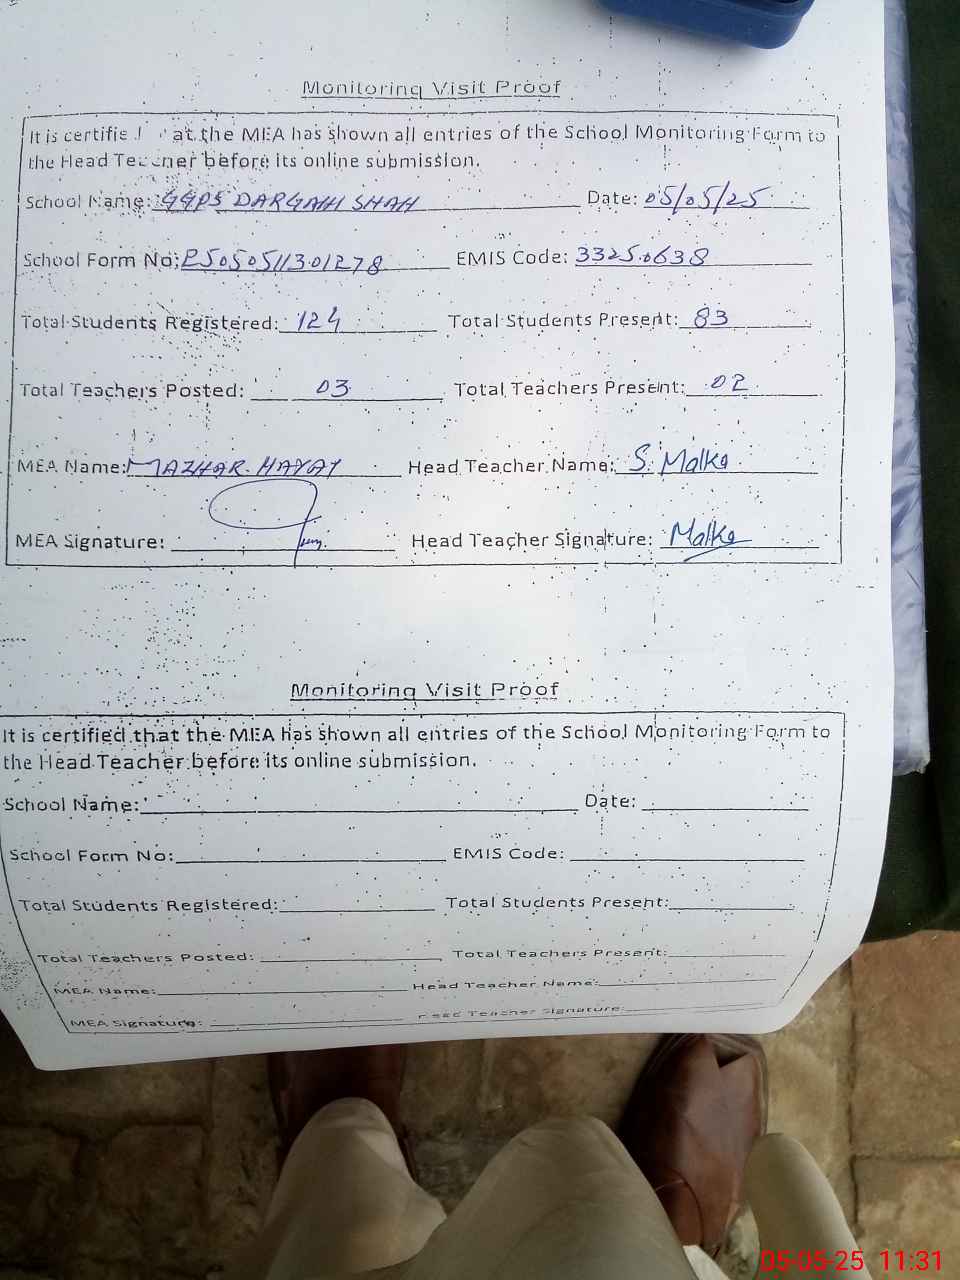 Monitoring Visit Proof
It is certifie at the MEA has shown all entries of the School Monitoring Form to
the Head Teacher before its online submission.
School Name: GGPS DARGAIH SHAH Date: 05/05/25
School Form No: P5050511301278 EMIS Code: 33250638
Total Students Registered: 124 Total Students Present: 83
Total Teachers Posted: 03 Total Teachers Present: 02
MEA Name: MAZHAR HAYAT Head Teacher Name: S. Malka
MEA Signature: Head Teacher Signature: Malka
Monitoring Visit Proof
It is certified that the MEA has shown all entries of the School Monitoring Form to
the Head Teacher before its online submission.
School Name: Date:
School Form No: EMIS Code:
Total Students Registered: Total Students Present:
Total Teachers Posted: Total Teachers Present:
MEA Name: Head Teacher Name:
MEA Signature: Head Teacher Signature:
05-05-25 11:31